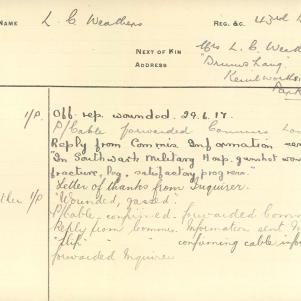 NAME L. C. Weathers REG. &C. 43rd B
NEXT OF KIN Mrs L. C. Weath
ADDRESS "Drumslaug"
Kenilworth
Park
1/P. Off. rep. wounded. 29.6.17.
P/Cable forwarded Commiss Lon
Reply from Commis Information rec
"In Southwark Military Hosp. gunshot wou
fracture, leg, satisfactory progress."
Letter of thanks from Inquirer.
ther 1/P "Wounded, gassed".
P/Cable, confirmed, forwarded Comm
Reply from Commis. Information sent
" " confirming cable infor
forwarded Inquirer